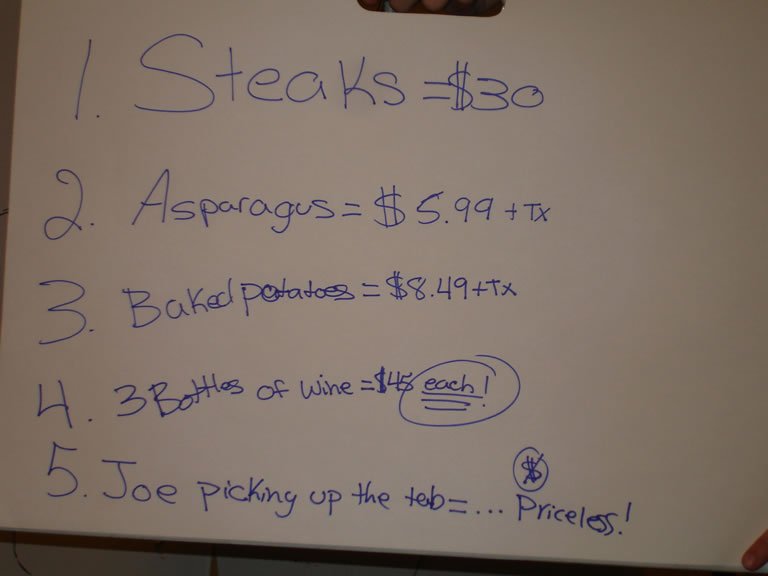 1. Steaks = $30
2. Asparagus = $5.99 + Tx
3. Baked potatoes = $8.49 + Tx
4. 3 Bottles of wine = $45 each!
$
5. Joe picking up the tab = ... Priceless!